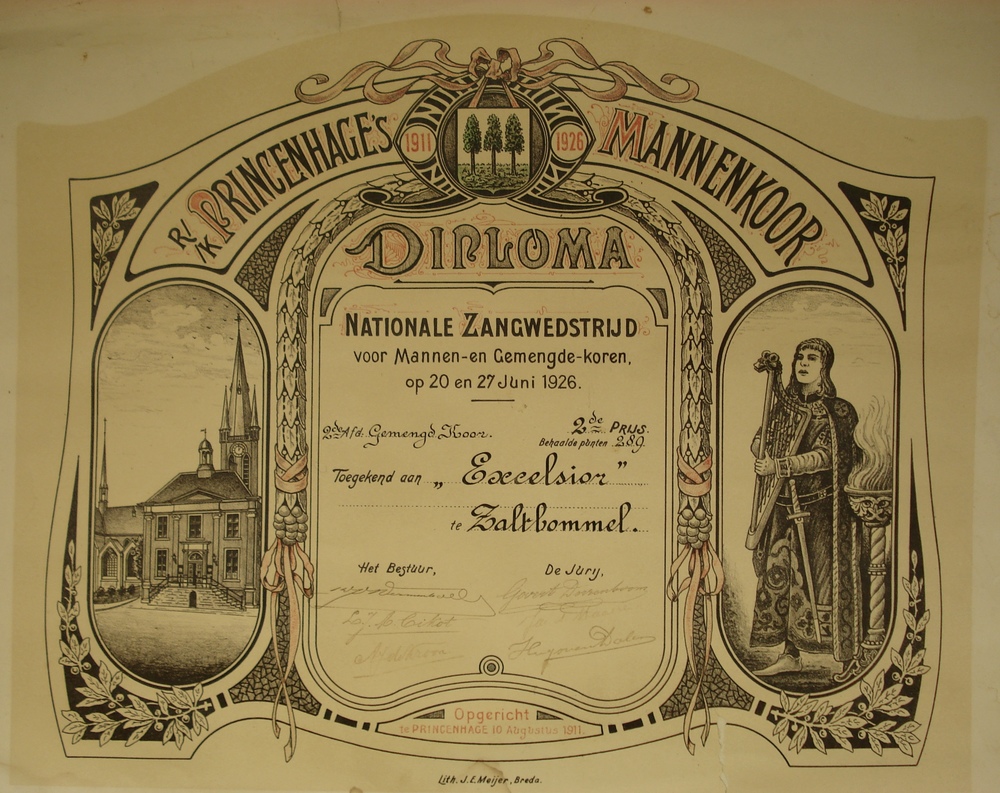 R/K PRINCENHAGE'S MANNENKOOR
1911 1926
DIPLOMA
NATIONALE ZANGWEDSTRIJD
voor Mannen-en Gemengde-koren,
op 20 en 27 Juni 1926.
2de Afd. Gemengd Koor.
2de PRIJS.
Behaalde punten 289.
Toegekend aan „Excelsior”
te Zaltbommel.
Het Bestuur,
De Jury,
Hugo van Dalen
Opgericht
te PRINCENHAGE 10 Augustus 1911.
Lith. J.E. Meijer, Breda.